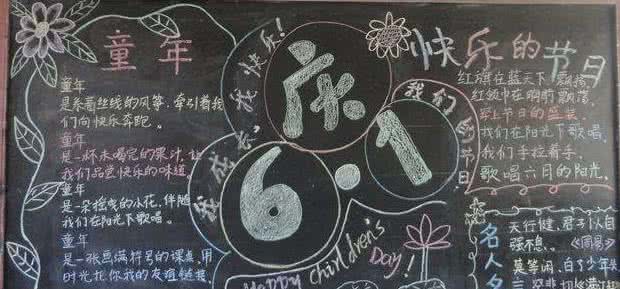 童年
童年
是系着丝线的风筝,牵引着我
们向快乐奔跑。
童年
是一杯未喝完的果汁,让
我们品尝快乐的味道
童年
是一朵摇曳的小花,伴随
我们在阳光下歌唱。
童年
是一张画满符号的课桌,用
时光托你我的友谊链接
我成长,我快乐!
庆
6·1
我们的节日
Happy Children's
Day!
快乐的节日
红旗在蓝天下飘扬
红领巾在胸前飘荡,
穿上节日的盛装
我们在阳光下歌唱,
我们手拉着手,
歌唱六月的阳光。
名人名
天行健,君子以自
强不息。《周易》
莫等闲,白了少年头
悲切